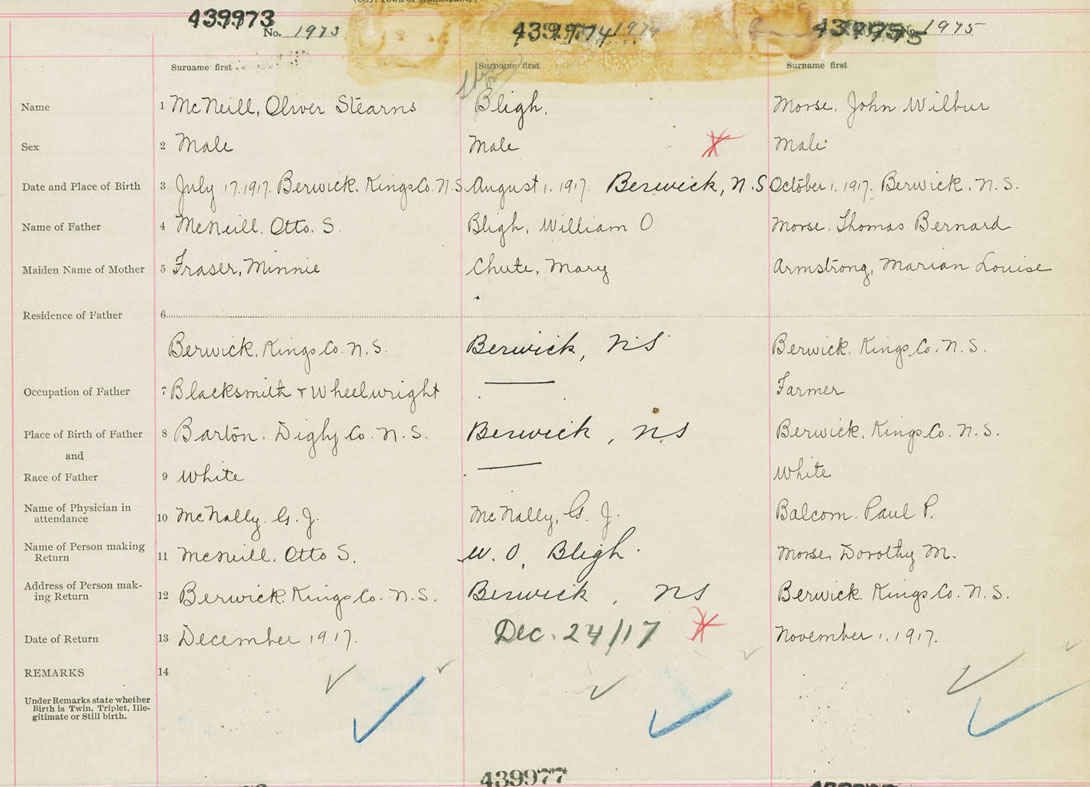 439973 439974 43975
No. 1973 1974 No. 1975
Surname first Surname first Surname first
Name 1 McNeill, Oliver Stearns Bligh, Morse, John Wilbur
Sex 2 Male Male Male
Date and Place of Birth 3 July 17. 1917. Berwick. Kings Co. N.S. August 1. 1917. Berwick, N.S October 1. 1917, Berwick, N.S.
Name of Father 4 McNeill. Otto. S. Bligh, William O Morse. Thomas Bernard
Maiden Name of Mother 5 Fraser, Minnie Chute, Mary Armstrong, Marian Louise
Residence of Father 6
Berwick, Kings Co. N.S. Berwick, NS Berwick, Kings Co. N.S.
Occupation of Father 7 Blacksmith + Wheelwright Farmer
Place of Birth of Father 8 Barton. Digby Co. N.S. Berwick, NS Berwick, Kings Co. N.S.
and
Race of Father 9 White White
Name of Physician in
attendance 10 McNally. G. J. McNally, G. J. Balcom. Paul P.
Name of Person making
Return 11 McNeill. Otto S. W. O. Bligh. Morse, Dorothy M.
Address of Person mak-
ing Return 12 Berwick. Kings Co. N.S. Berwick, NS Berwick. Kings Co. N.S.
Date of Return 13 December 1917. Dec. 24/17 November 1. 1917.
REMARKS 14
Under Remarks state whether
Birth is Twin, Triplet, Ille-
gitimate or Still birth.
439977